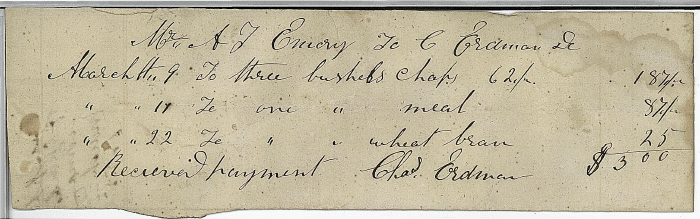 Mrs A J Emory To C Erdman Dr
March the 9 To three bushels chops 62½ 187½
" " 17 To one " meal 87½
" " 22 To " " wheat bran 25
Recieved payment Chas Erdman $3 00